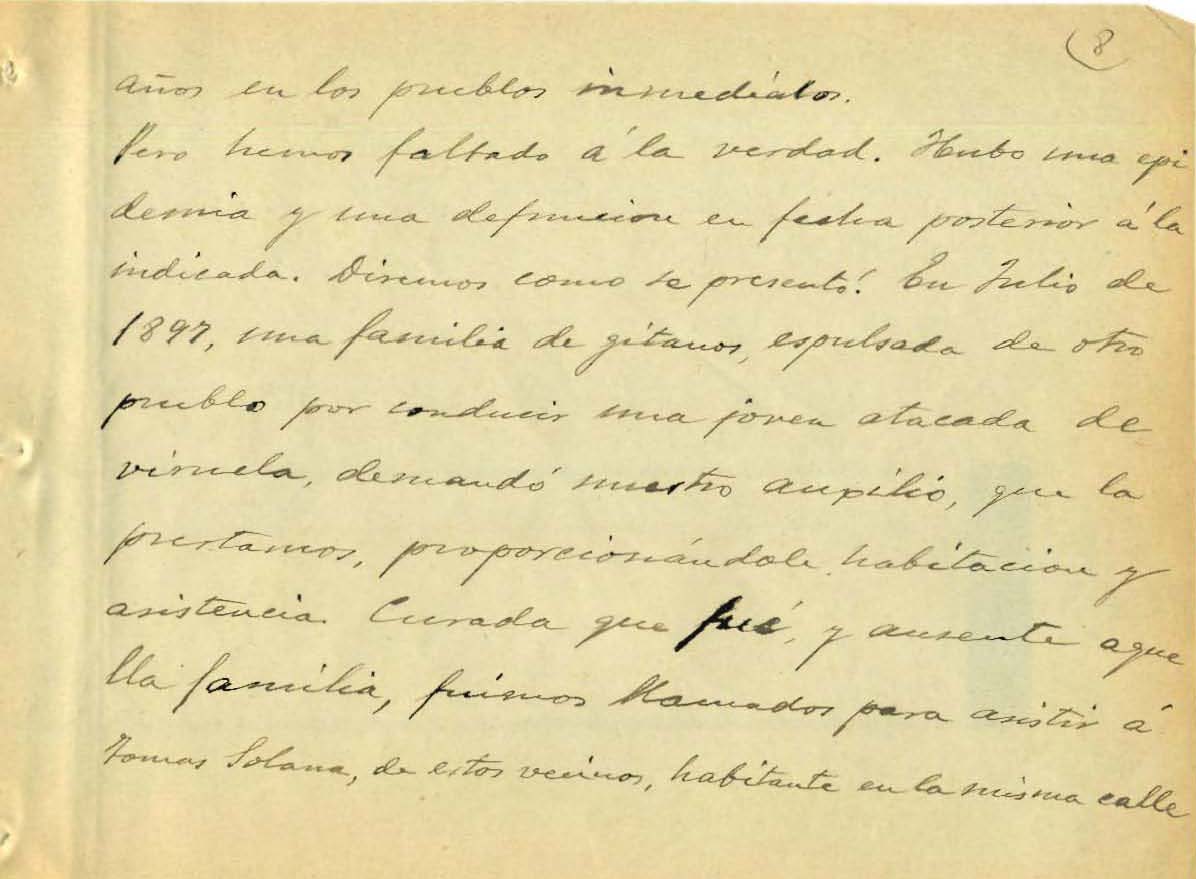 8
años en los pueblos inmediátos.
Pero hemos faltado á la verdad. Hubo una epi
demia y una defuncion en fecha posterior á la
indicada. Diremos como se presentó. En Julio de
1897, una familia de gitanos, espulsada de otro
pueblo por conducir una joven atacada de
viruela, demandó nuestro auxilio, que la
prestamos, proporcionándole habitacion y
asistencia. Curada que fué, y ausente aque
lla família, fuimos llamados para asistir á
Tomas Solana, de estos vecinos, habitante en la misma calle